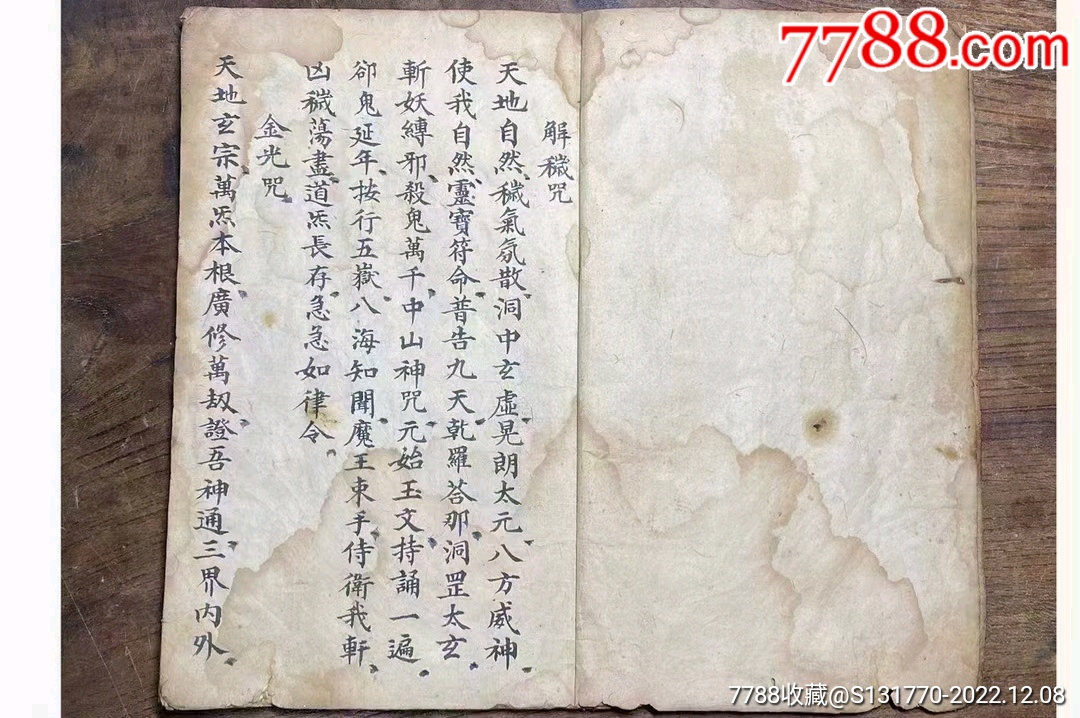 7788.com
解穢咒
天地自然穢氣氛散洞中玄虛晃朗太元八方威神
使我自然靈寶符命普告九天乾羅荅那洞罡太玄
斬妖縛邪殺鬼萬千中山神咒元始玉文持誦一遍
卻鬼延年按行五嶽八海知聞魔王束手侍衛我軒
凶穢蕩盡道炁長存急急如律令
金光咒
天地玄宗萬炁本根廣修萬劫證吾神通三界內外
7788收藏@S131770-2022.12.08